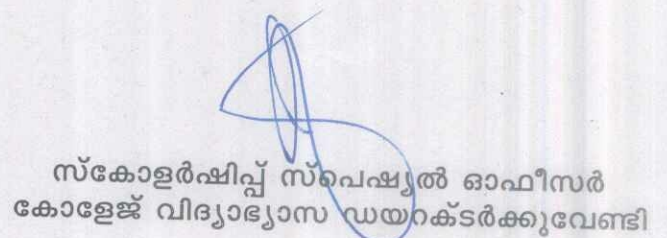 സ്കോളർഷിപ്പ് സ്പെഷ്യൽ ഓഫീസർ
കോളേജ് വിദ്യാഭ്യാസ ഡയറക്ടർക്കുവേണ്ടി